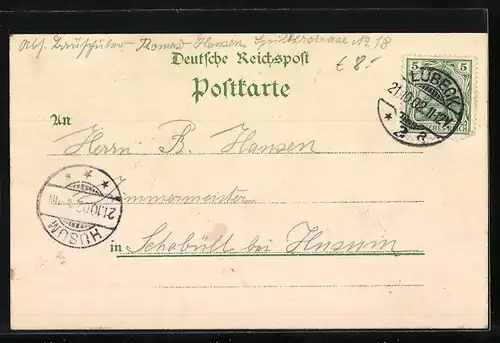 Abs. Bauschüler Thomas Hansen Spillerstrasse No 18
€ 8.-
Deutsche Reichspost
Postkarte
5 5
LÜBECK
21.10.02.11-12V.
2 a
An
Herrn B. Hansen
Zimmermeister
21.10.02
HUSUM
in Schobüll bei Husum